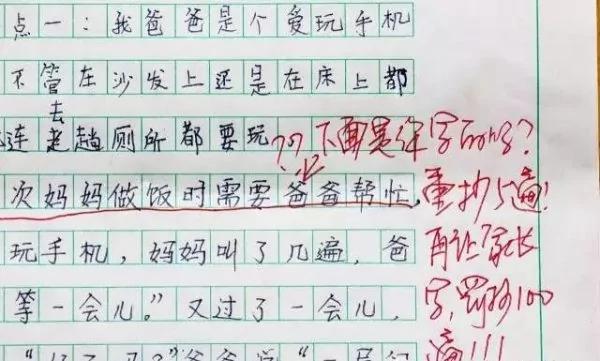 点一：我爸爸是个爱玩手机
不管在沙发上还是在床上都
去
连老趟厕所都要玩
?? 下面是你写的吗?
次妈妈做饭时需要爸爸帮忙,
重抄5遍!
玩手机，妈妈叫了几遍，爸
再让家长
等一会儿。”又过了一会儿，
字,罚抄100
遍!!!